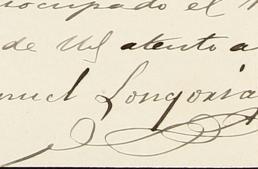 ocupado el
de Ud atento a
nuel Longoria